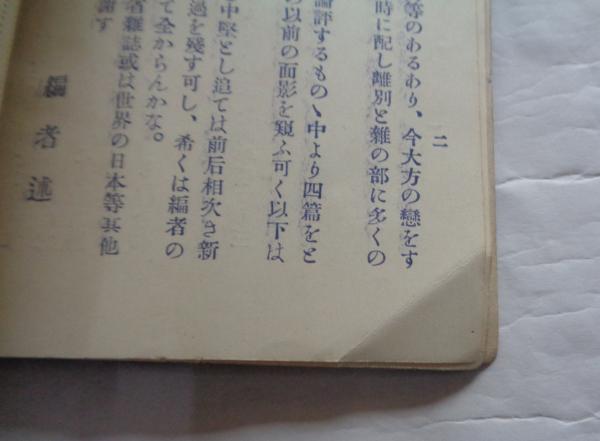 二
等のあるあり、今大方の戀をす
時に配し離別と雜の部に多くの
論評するものヽ中より四篇をと
の以前の面影を窺ふ可く以下は
中堅とし追ては前后相次き新
過を殘す可し、希くは編者の
て全からんかな。
省雜誌或は世界の日本等其他
謝す
編者連